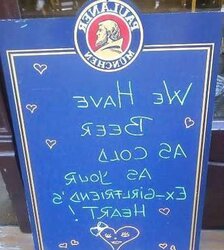 PAULANER
MÜNCHEN
WE HAVE
BEER
AS COLD
AS YOUR
EX-GIRLFRIEND'S
HEART!